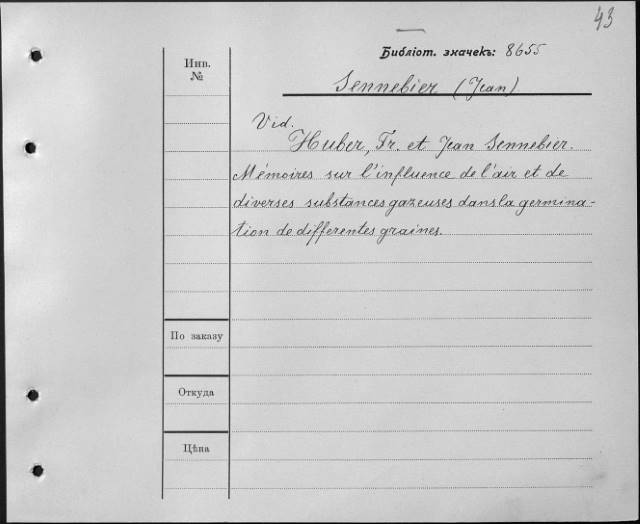 43
Библіот. значекъ: 8655
Инв.
№
Sennebier (Jean)
Vid.
Huber, Fr. et Jean Sennebier.
Mémoires sur l'influence de l'air et de
diverses substances gazeuses dans la germina-
tion de differentes graines.
По заказу
Откуда
Цѣна